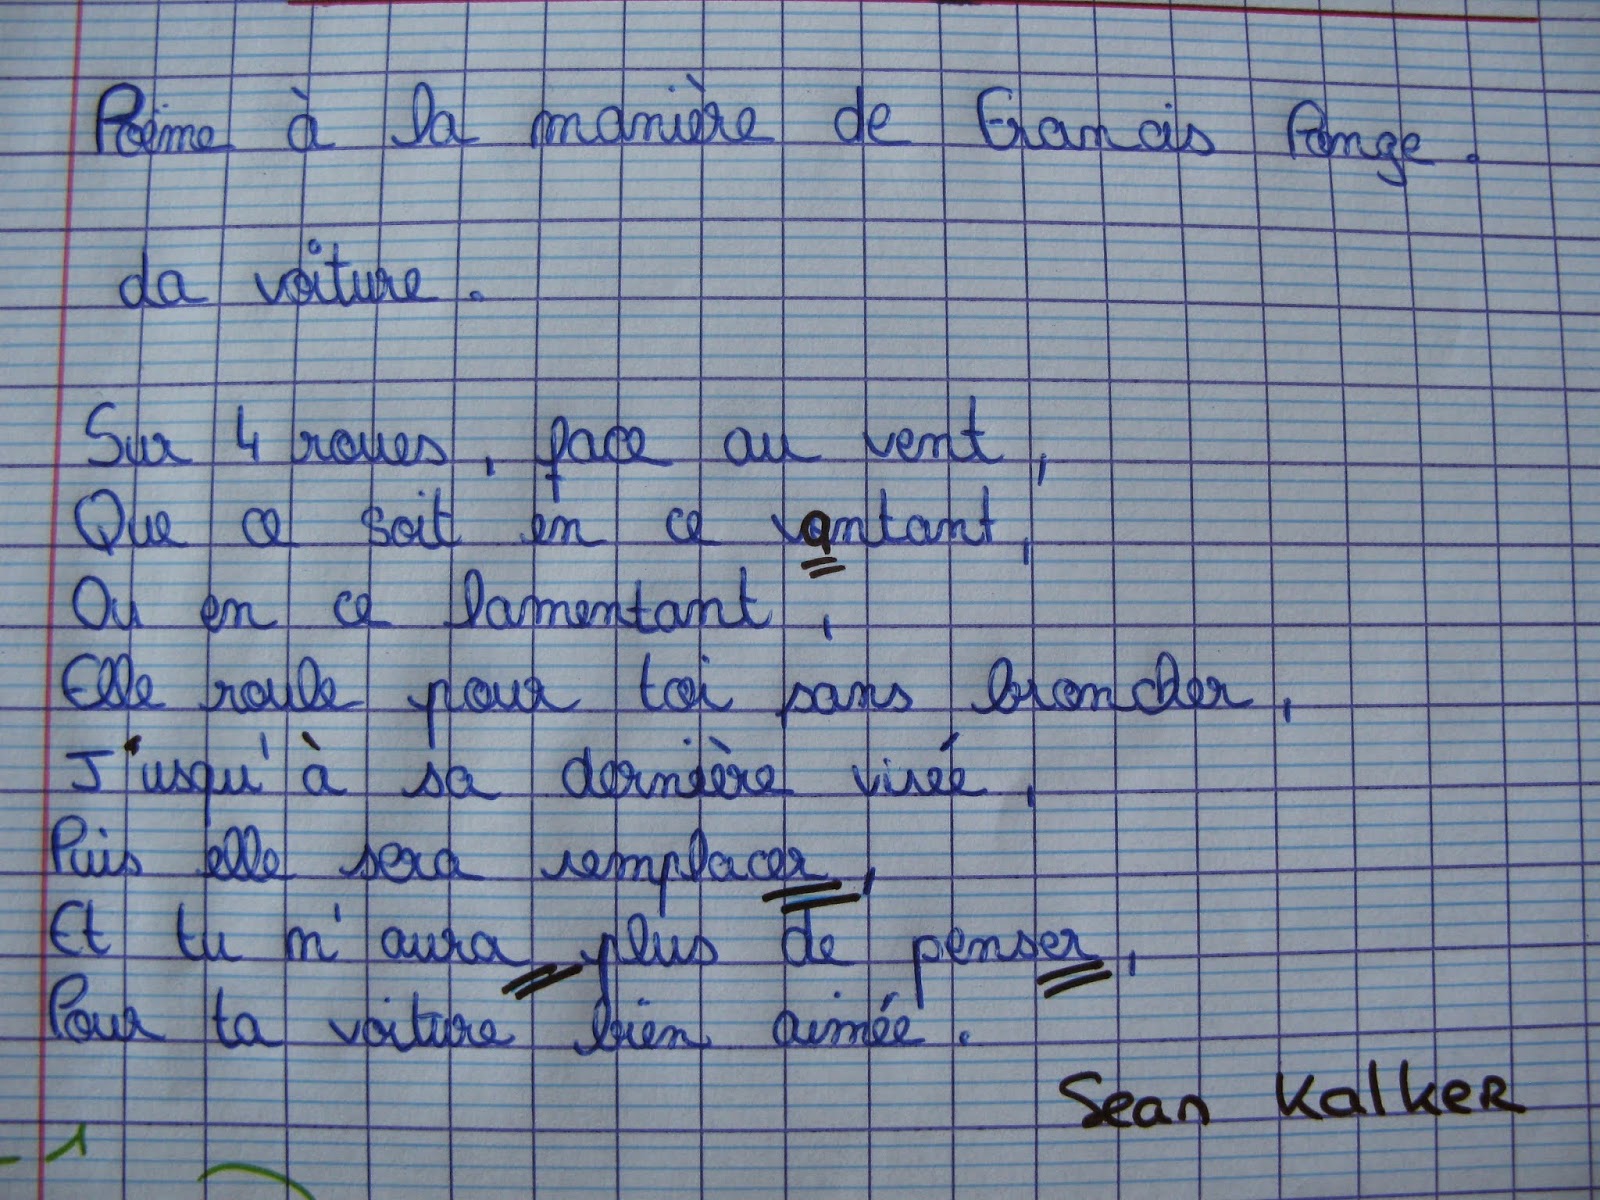 Poème à la manière de Francis Ponge.
La voiture.
Sur 4 roues, face au vent,
Que ce soit en ce vantant,
Ou en ce lamentant,
Elle roule pour toi sans broncher,
J'usqu'à sa dernière virée,
Puis elle sera remplacer,
Et tu m'aura plus de penser,
Pour ta voiture bien aimée.
Sean KalkeR
-1